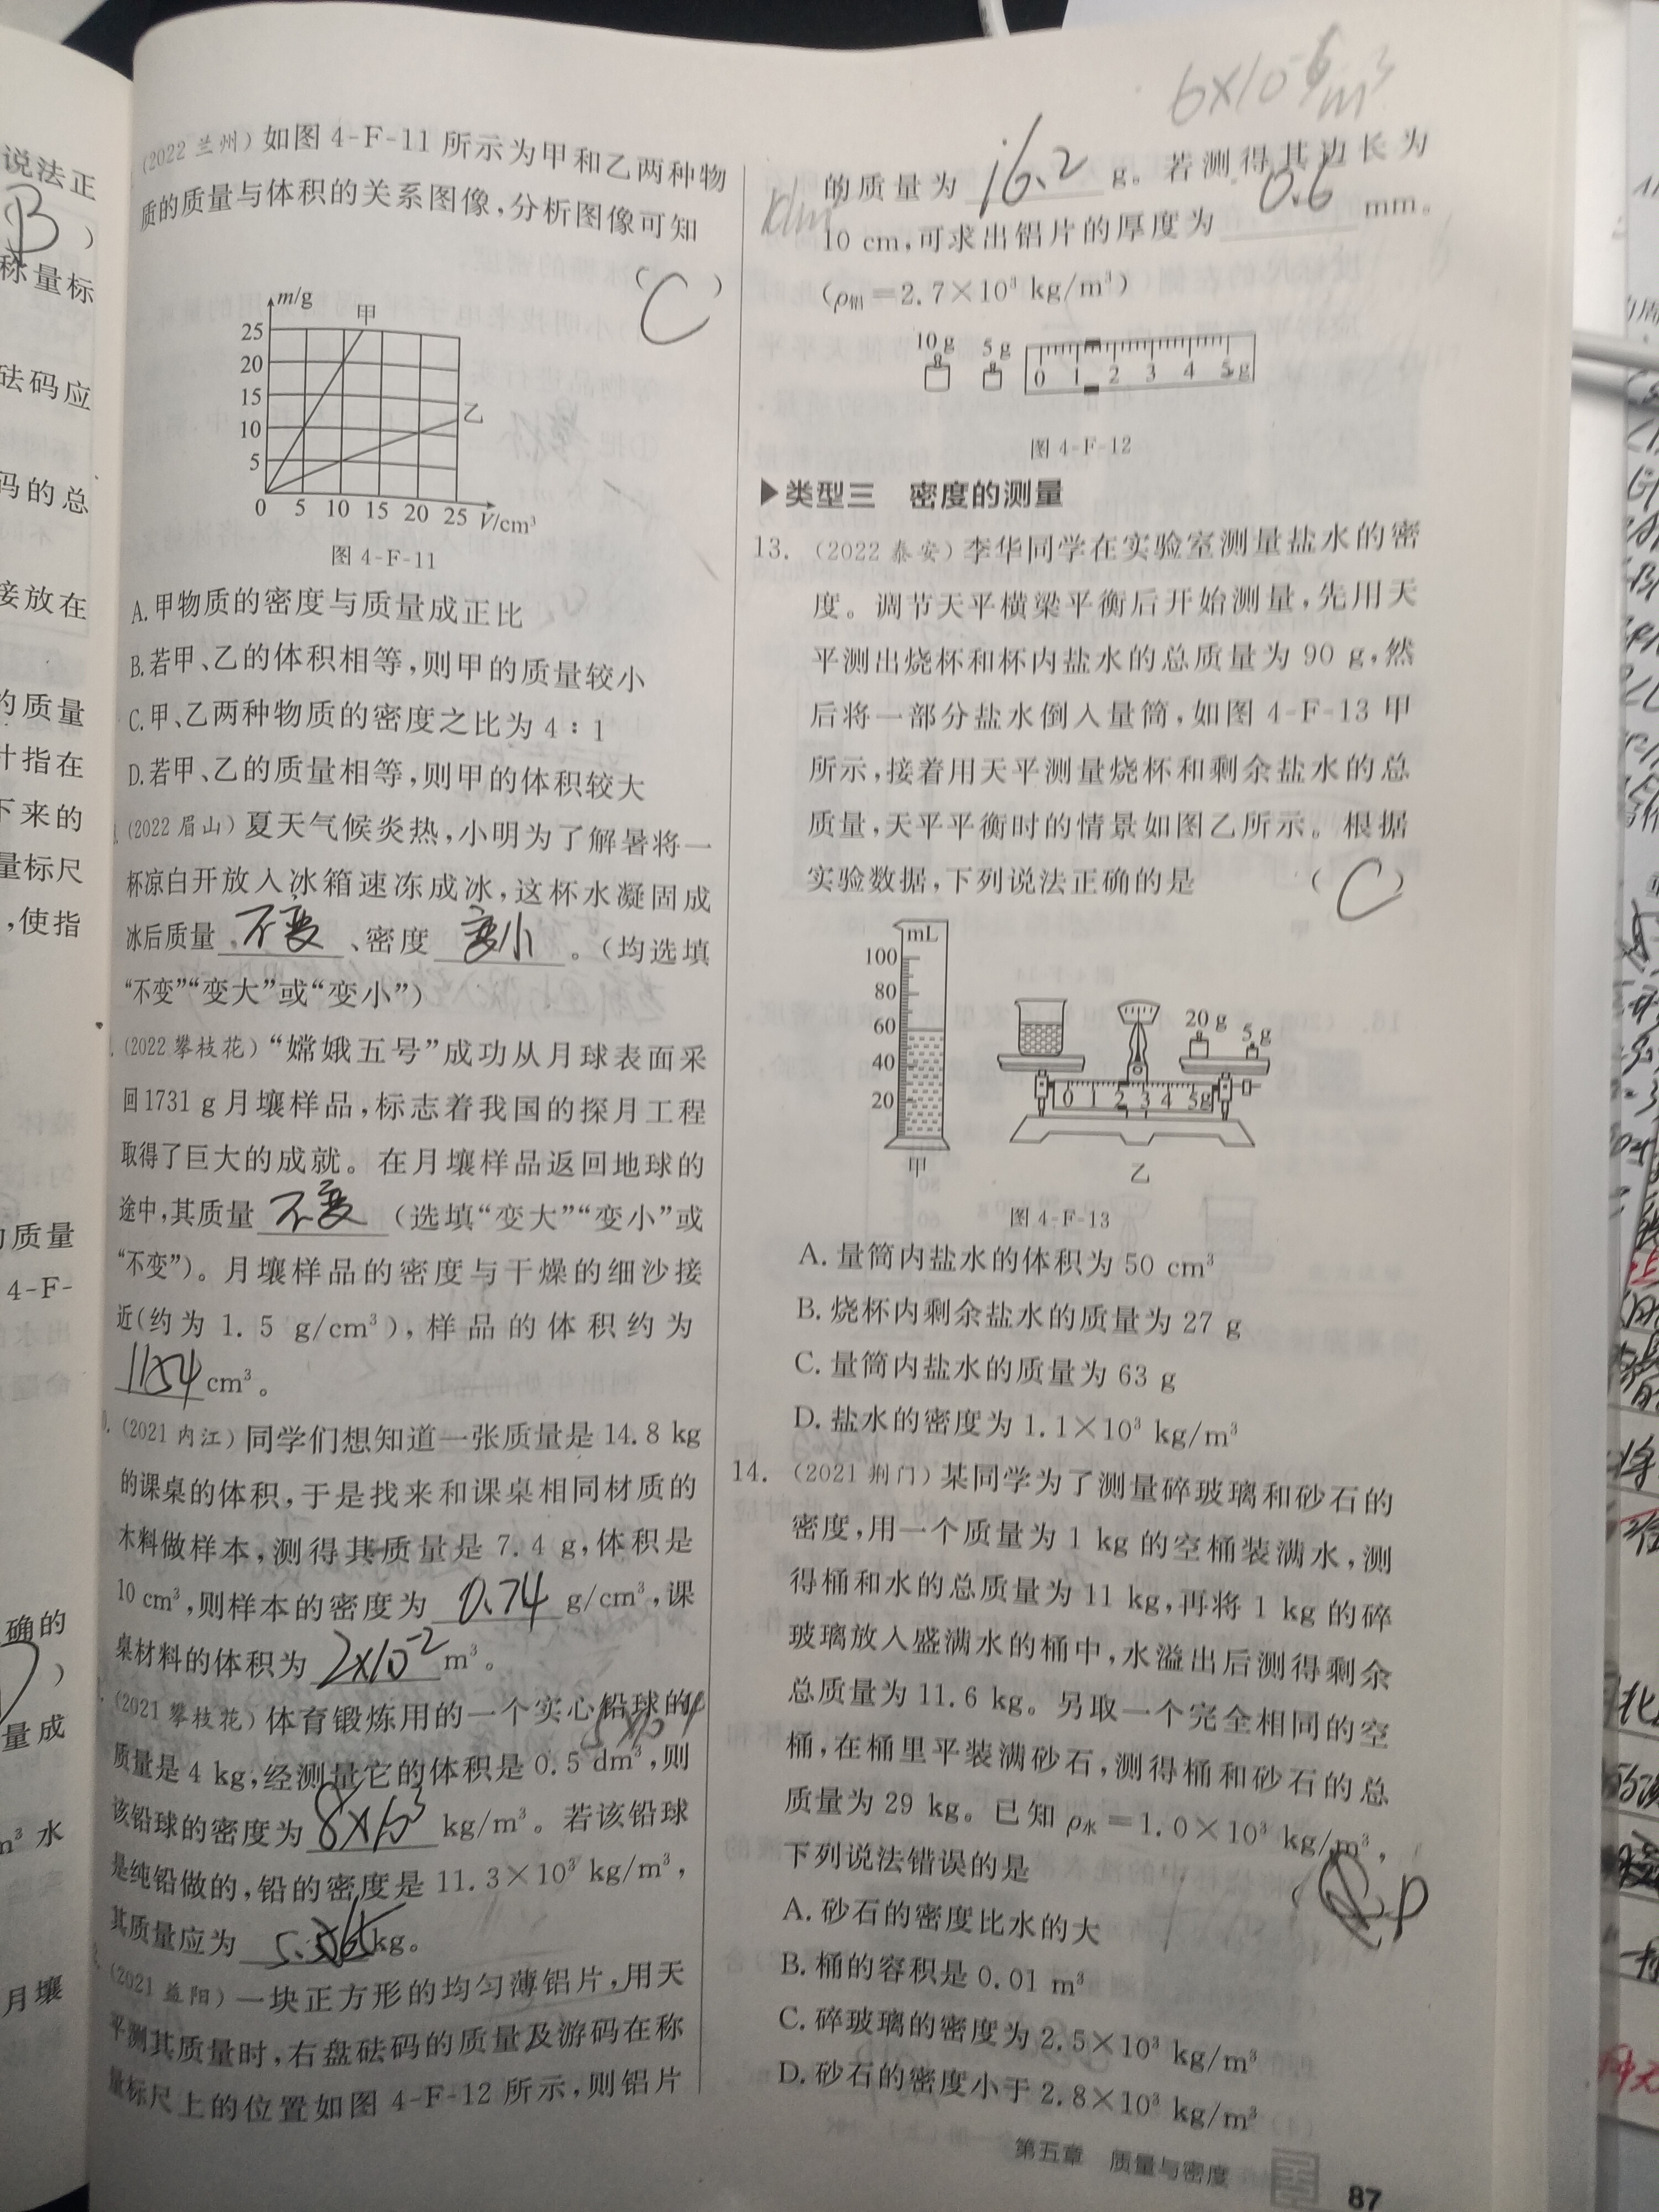 说法正
B )
称量标
砝码应
码的总
接放在
的质量
针指在
下来的
量标尺
,使指
的质量
4-F-
确的
)
量成
m³ 水
月壤
(2022 兰州) 如图 4-F-11 所示为甲和乙两种物
质的质量与体积的关系图像,分析图像可知
( C )
m/g
甲
25
20
15
10
5
乙
0 5 10 15 20 25 V/cm³
图 4-F-11
A.甲物质的密度与质量成正比
B.若甲、乙的体积相等,则甲的质量较小
C.甲、乙两种物质的密度之比为 4∶1
D.若甲、乙的质量相等,则甲的体积较大
(2022 眉山) 夏天气候炎热,小明为了解暑将一
杯凉白开放入冰箱速冻成冰,这杯水凝固成
冰后质量 不变 、密度 变小 。(均选填
“不变”“变大”或“变小”)
(2022 攀枝花) “嫦娥五号”成功从月球表面采
回1731 g 月壤样品,标志着我国的探月工程
取得了巨大的成就。在月壤样品返回地球的
途中,其质量 不变 (选填“变大”“变小”或
“不变”)。月壤样品的密度与干燥的细沙接
近(约为 1.5 g/cm³),样品的体积约为
1154 cm³。
(2021 内江) 同学们想知道一张质量是 14.8 kg
的课桌的体积,于是找来和课桌相同材质的
木料做样本,测得其质量是 7.4 g,体积是
10 cm³,则样本的密度为 0.74 g/cm³,课
桌材料的体积为 2×10⁻² m³。
(2021 攀枝花) 体育锻炼用的一个实心铅球的
质量是 4 kg,经测量它的体积是 0.5 dm³,则
该铅球的密度为 8×10³ kg/m³。若该铅球
是纯铅做的,铅的密度是 11.3×10³ kg/m³,
其质量应为 kg。
(2021 益阳) 一块正方形的均匀薄铝片,用天
平测其质量时,右盘砝码的质量及游码在称
量标尺上的位置如图 4-F-12 所示,则铝片
6×10⁻⁶m³
的质量为 16.2 g。若测得其边长为
10 cm,可求出铝片的厚度为 0.6 mm。
(ρ铝=2.7×10³ kg/m³)
10 g 5 g
0 1 2 3 4 5g
图 4-F-12
▶类型三 密度的测量
13. (2022 泰安) 李华同学在实验室测量盐水的密
度。调节天平横梁平衡后开始测量,先用天
平测出烧杯和杯内盐水的总质量为 90 g,然
后将一部分盐水倒入量筒,如图 4-F-13 甲
所示,接着用天平测量烧杯和剩余盐水的总
质量,天平平衡时的情景如图乙所示。根据
实验数据,下列说法正确的是 ( C )
mL
100
80
60
40
20
甲
20 g 5 g
0 1 2 3 4 5g
乙
图 4-F-13
A. 量筒内盐水的体积为 50 cm³
B. 烧杯内剩余盐水的质量为 27 g
C. 量筒内盐水的质量为 63 g
D. 盐水的密度为 1.1×10³ kg/m³
14. (2021 荆门) 某同学为了测量碎玻璃和砂石的
密度,用一个质量为 1 kg 的空桶装满水,测
得桶和水的总质量为 11 kg,再将 1 kg 的碎
玻璃放入盛满水的桶中,水溢出后测得剩余
总质量为 11.6 kg。另取一个完全相同的空
桶,在桶里平装满砂石,测得桶和砂石的总
质量为 29 kg。已知 ρ水=1.0×10³ kg/m³,
下列说法错误的是 ( D
A. 砂石的密度比水的大
B. 桶的容积是 0.01 m³
C. 碎玻璃的密度为 2.5×10³ kg/m³
D. 砂石的密度小于 2.8×10³ kg/m³
第五章 质量与密度
87